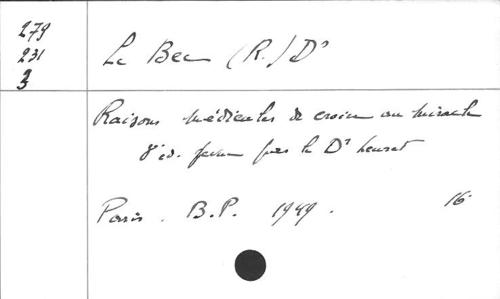 279
231
3
Le Bec (R.) Dr
Raisons médicales de croire au miracle
8e éd. par le Dr
Paris. B.P. 1949. 16